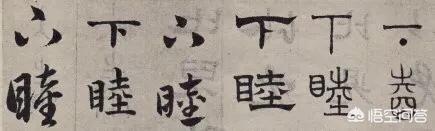 下睦
下睦
下睦
下睦
下睦
下睦
悟空问答